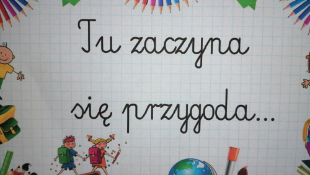 Tu zaczyna
się przygoda...